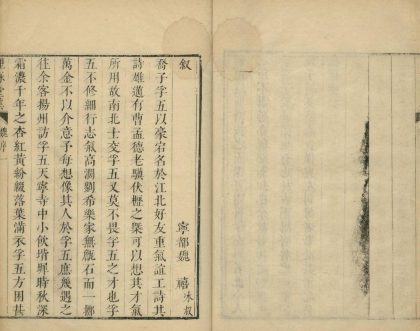 叙
寧都魏 禧 冰叔
喬子孚五以豪宕名於江北好友重氣誼工詩其
詩雄邁有曹孟德老驥伏櫪之槩可以想其才氣
所用故南北士交孚五又莫不畏孚五之才也孚
五不修細行志氣高濶劉希樂家無甔石而一擲
萬金不以介意予每想像其人於孚五庶幾遇之
往余客揚州訪孚五天寧寺中小飲堦墀時秋深
霜濃千年之杏紅黃紛綴落葉滿衣孚五方困甚